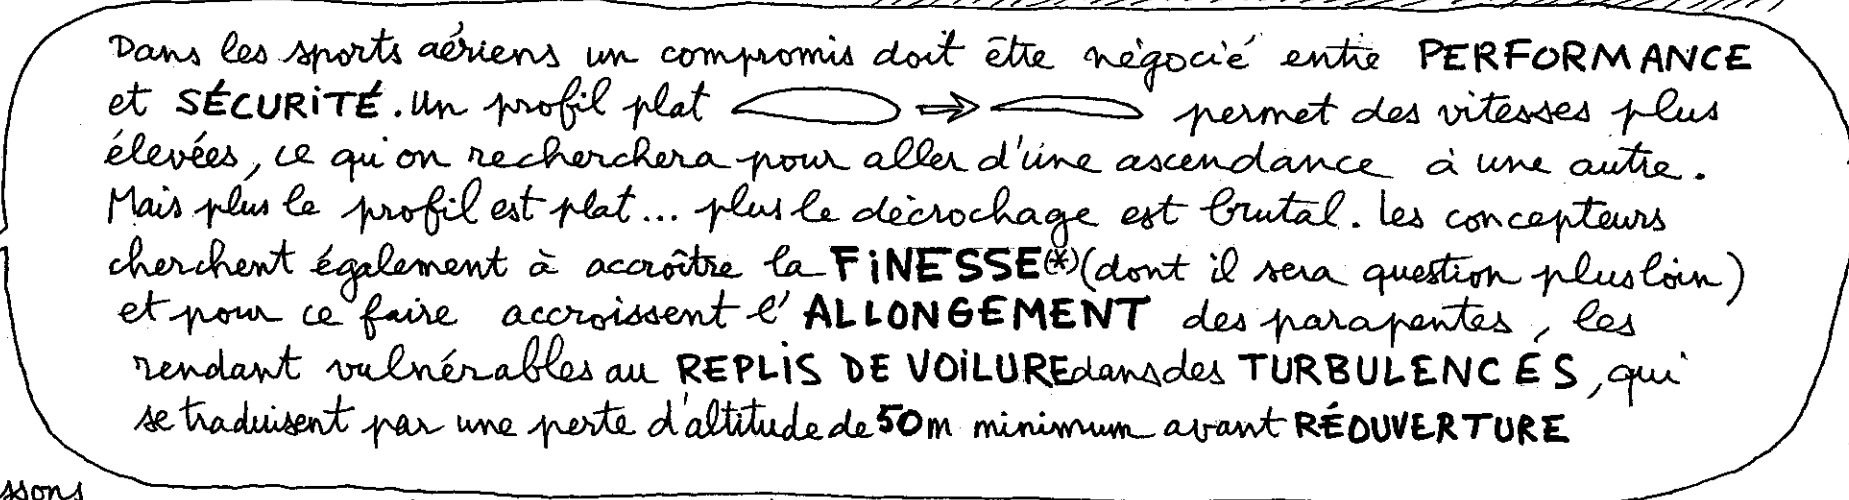 Dans les sports aériens un compromis doit être négocié entre PERFORMANCE
et SÉCURITÉ. Un profil plat permet des vitesses plus
élevées, ce qu'on recherchera pour aller d'une ascendance à une autre.
Mais plus le profil est plat... plus le décrochage est brutal. Les concepteurs
cherchent également à accroître la FINESSE(*) (dont il sera question plus loin)
et pour ce faire accroissent l'ALLONGEMENT des parapentes, les
rendant vulnérables au REPLIS DE VOILURE dans des TURBULENCES, qui
se traduisent par une perte d'altitude de 50m minimum avant RÉOUVERTURE
ssons